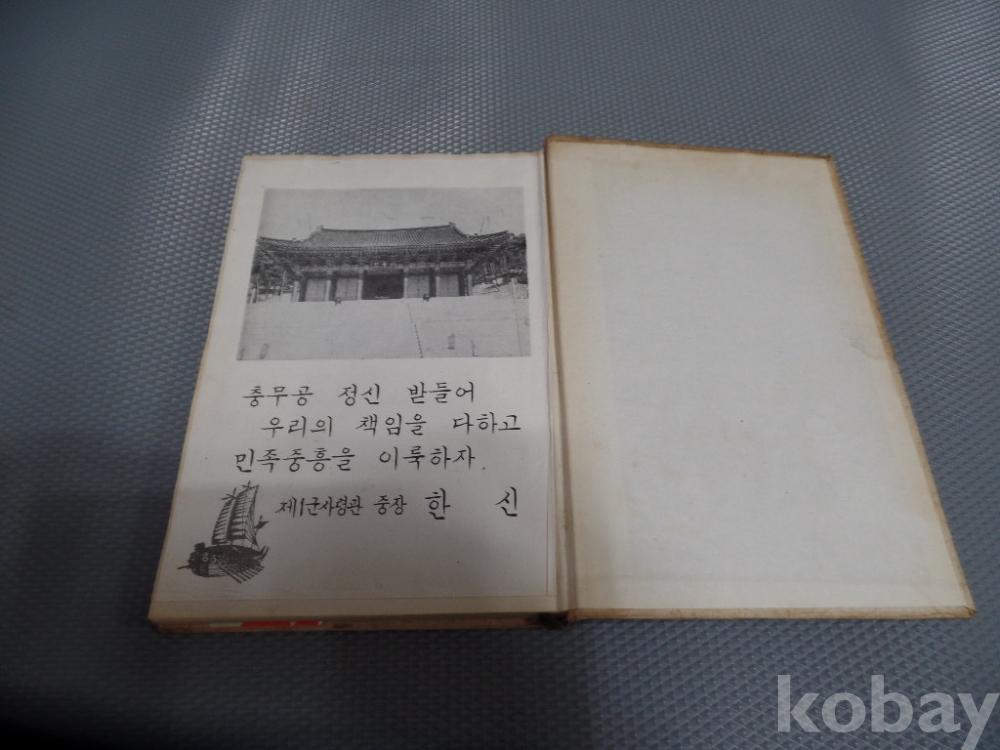 충무공 정신 받들어
우리의 책임을 다하고
민족중흥을 이룩하자.
제1군사령관 중장 한 신
kobay